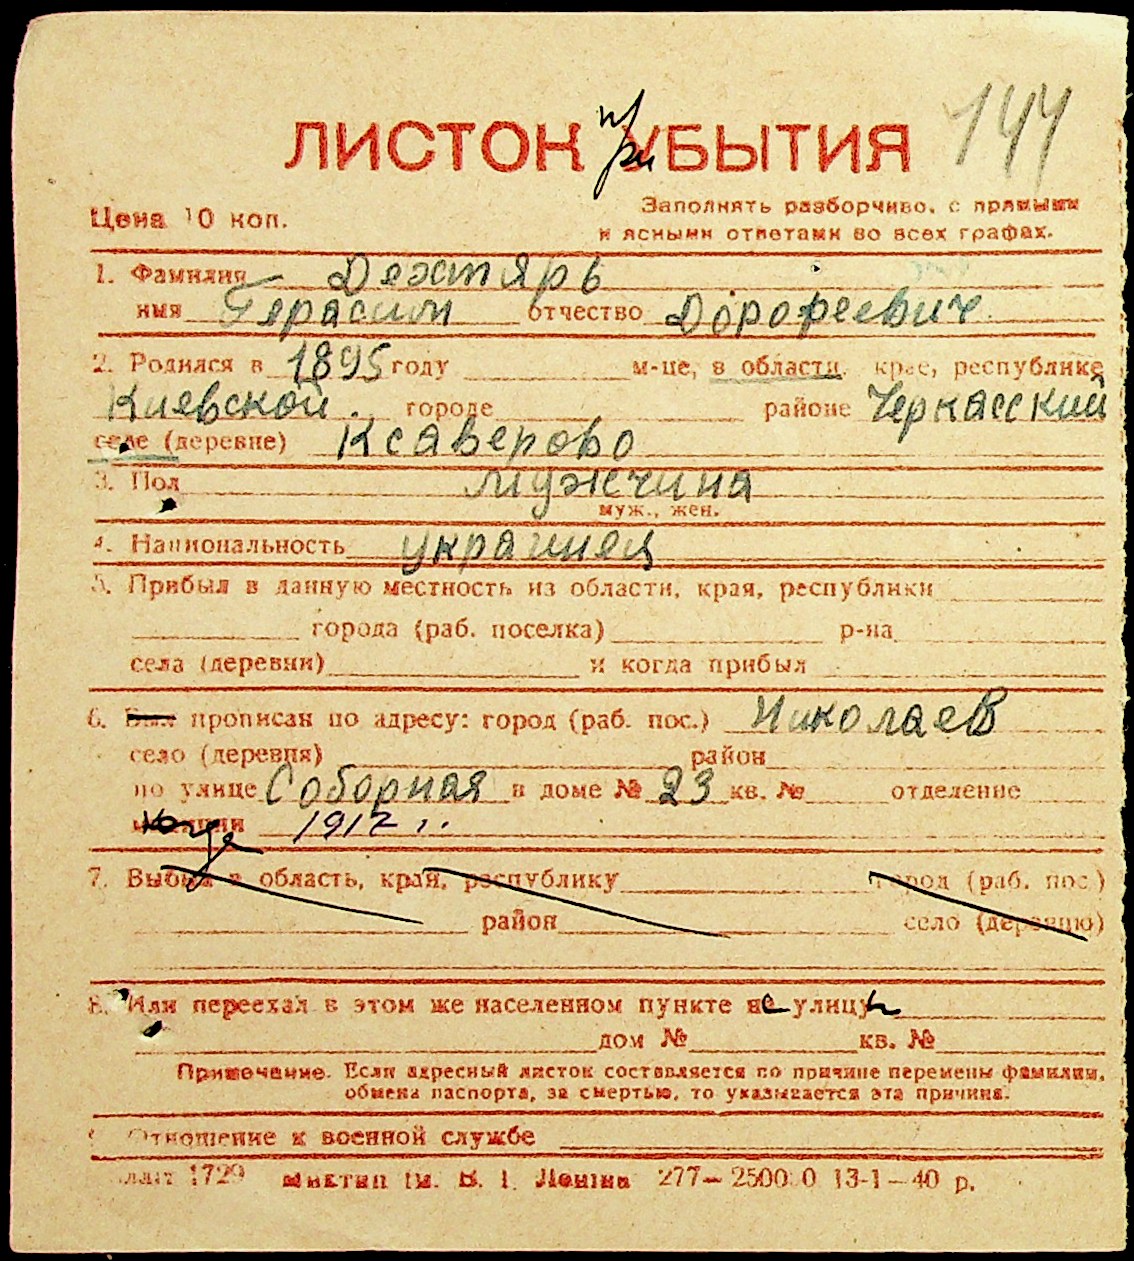 ЛИСТОК при УБЫТИЯ 144
Цена 10 коп.
Заполнять разборчиво, с прямыми
и ясными ответами во всех графах.
1. Фамилия Дехтярь
имя Герасим отчество Дорофеевич
2. Родился в 1895 году м-це, в области, крае, республике
Киевской. городе районе Черкасский
селе (деревне) Ксаверово
3. Пол мужчина
муж., жен.
4. Национальность украинец
5. Прибыл в данную местность из области, края, республики
города (раб. поселка) р-на
села (деревни) и когда прибыл
6. Был прописан по адресу: город (раб. пос.) Николаев
село (деревня) район
по улице Соборная в доме № 23 кв. № отделение
милиции 1917 г.
7. Выбыл в область, край, республику город (раб. пос.)
район село (деревню)
8. Или переехал в этом же населенном пункте не улицу
дом № кв. №
Примечание. Если адресный листок составляется по причине перемены фамилии,
обмена паспорта, за смертью, то указывается эта причина.
9. Отношение к военной службе
1729 ім. В. І. Леніна 277—25000 13-1—40 р.